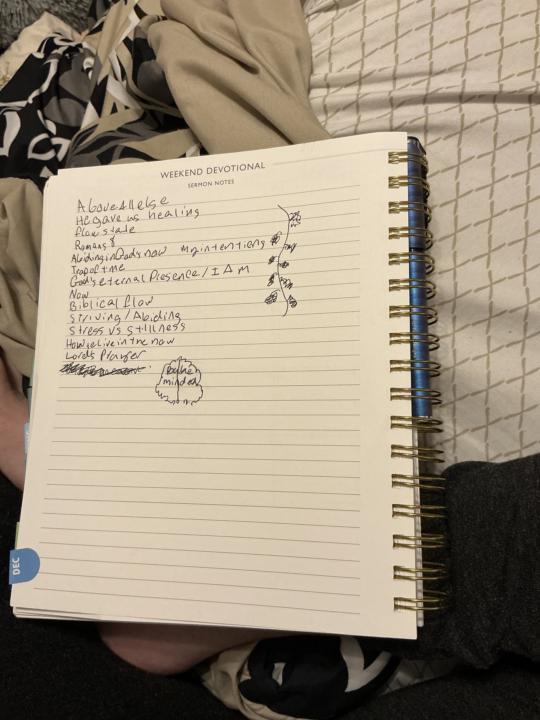 WEEKEND DEVOTIONAL
SERMON NOTES
Above All else
He gave us healing
flow state
Romans 8
Abiding in God's now my intentions
Trap of time
God's eternal Presence / I A M
Now
Biblical flow
Striving / Abiding
Stress vs Stillness
How we live in the now
Lord's Prayer
minded
DEC